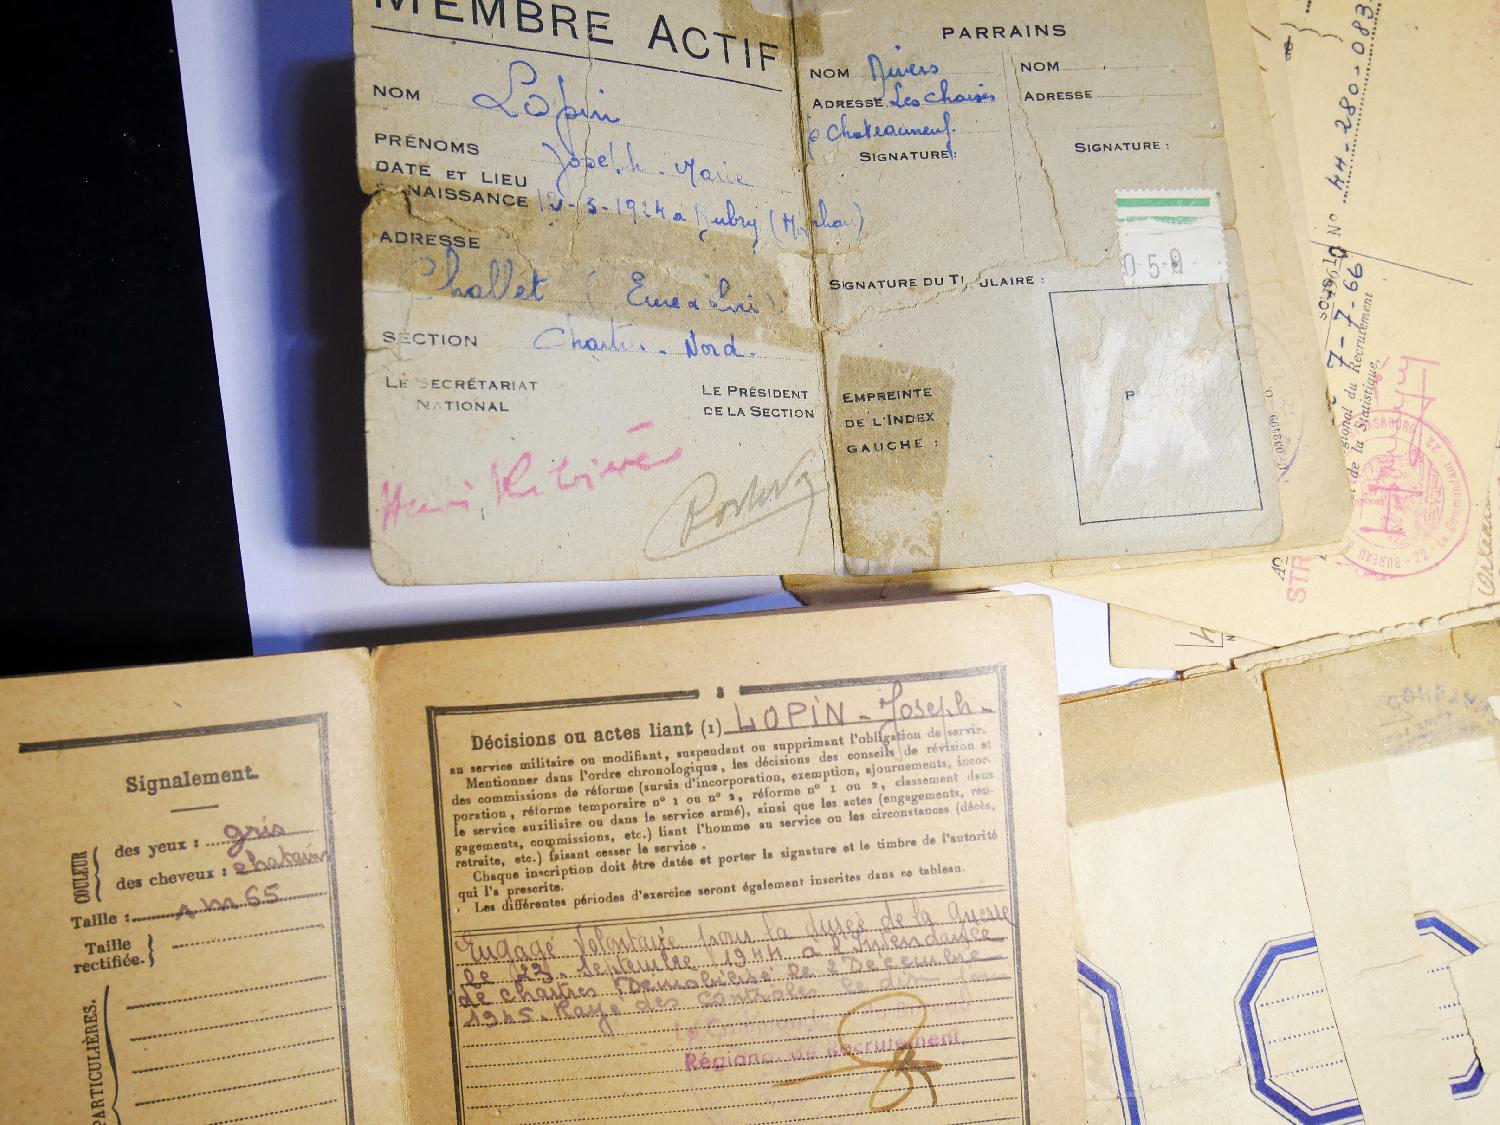 MEMBRE ACTIF
NOM Lopin
PRÉNOMS Joseph - Marie
DATE ET LIEU
NAISSANCE 12-3-1924 à
ADRESSE
Challet (Eure & Loir)
SECTION Chart. - Nord.
LE SECRÉTARIAT
NATIONAL
LE PRÉSIDENT
DE LA SECTION
PARRAINS
NOM
ADRESSE Les
Chateauneuf
SIGNATURE:
NOM
ADRESSE
SIGNATURE :
SIGNATURE DU TITULAIRE :
059
EMPREINTE
DE L'INDEX
GAUCHE :
P
N° 44-280-083
7-7-66
gional du Recrutement
de la Statistique,
STR
Signalement.
COULEUR
des yeux : gris
des cheveux : chatain
Taille : 1 m 65
Taille
rectifiée.
PARTICULIÈRES.
Décisions ou actes liant (1) LOPIN - Joseph -
au service militaire ou modifiant, suspendant ou supprimant l'obligation de servir.
Mentionner dans l'ordre chronologique, les décisions des conseils de révision et
des commissions de réforme (sursis d'incorporation, exemption, ajournements, incor-
poration, réforme temporaire n° 1 ou n° 2, réforme n° 1 ou 2, classement dans
le service auxiliaire ou dans le service armé), ainsi que les actes (engagements, ren-
gagements, commissions, etc.) liant l'homme au service ou les circonstances (décès,
retraite, etc.) faisant cesser le service.
Chaque inscription doit être datée et porter la signature et le timbre de l'autorité
qui l'a prescrite.
Les différentes périodes d'exercice seront également inscrites dans ce tableau.
Engagé Volontaire pour la durée de la Guerre
le 23 Septembre 1944 à l'Intendance
de Chartres Démobilisé le 2 Décembre
1945. Rayé des Contrôles le dit jour
Régional de Recrutement